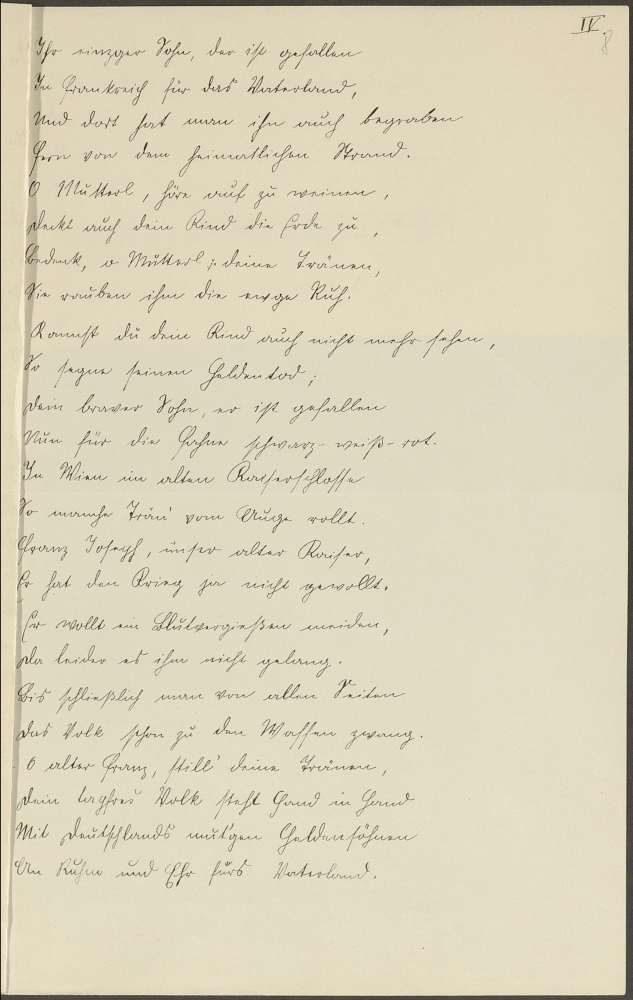 IV.
8
Ihr einzger Sohn, der ist gefallen
In Frankreich für das Vaterland,
Und dort hat man ihn auch begraben
Fern von dem heimatlichen Strand.
O Mutterl, höre auf zu weinen,
Deckt auch dein Kind die Erde zu,
Bedenk, o Mutterl; deine Tränen,
Sie rauben ihm die ewge Ruh.
Kannst du dein Kind auch nicht mehr sehen,
So segne seinen Heldentod;
Dein braver Sohn, er ist gefallen
Nun für die Fahne schwarz-weiß-rot.
In Wien im alten Kaiserschlosse
So manche Trän' vom Auge rollt.
Franz Joseph, unser alter Kaiser,
Er hat den Krieg ja nicht gewollt.
Er wollt ein Blutvergießen meiden,
Da leider es ihm nicht gelang.
Bis schließlich man von allen Seiten
Das Volk schon zu den Waffen zwang.
O alter Franz, still' deine Tränen,
Dein tapfres Volk steht Hand in Hand
Mit Deutschlands mut'gen Heldensöhnen
An Ruhm und Ehr fürs Vaterland.